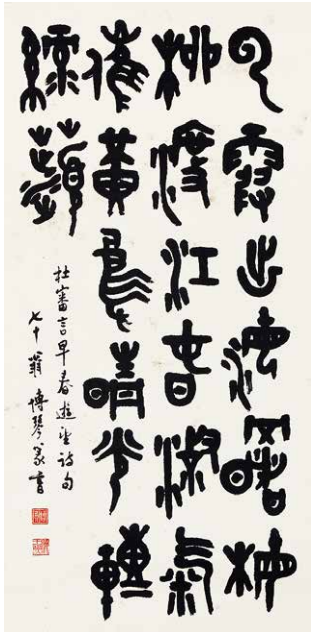 云霞出海曙梅
柳渡江春淑氣
催黃鳥晴光轉
綠蘋
杜審言早春遊望詩句
七十翁博琴篆書